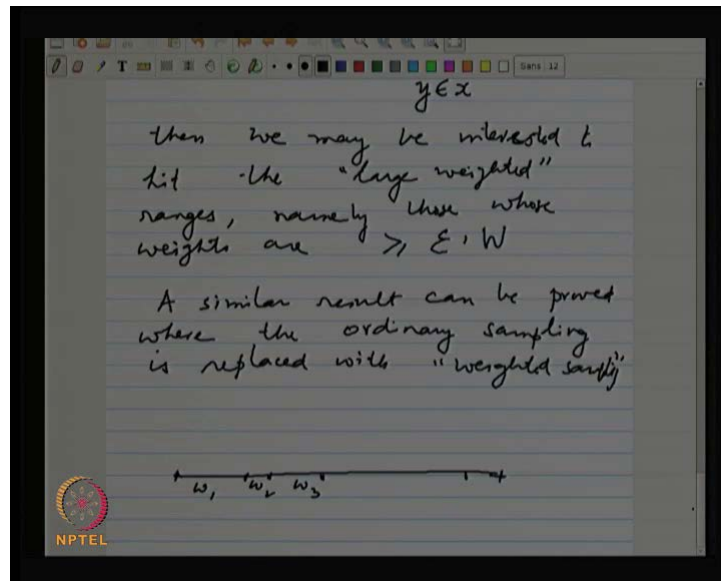 T
Sans 12
y ∈ x
then we may be interested to
hit the "large weighted"
ranges, namely those whose
weights are ≥ ε · W
A similar result can be proved
where the ordinary sampling
is replaced with "weighted sampling"
w₁ w₂ w₃
NPTEL